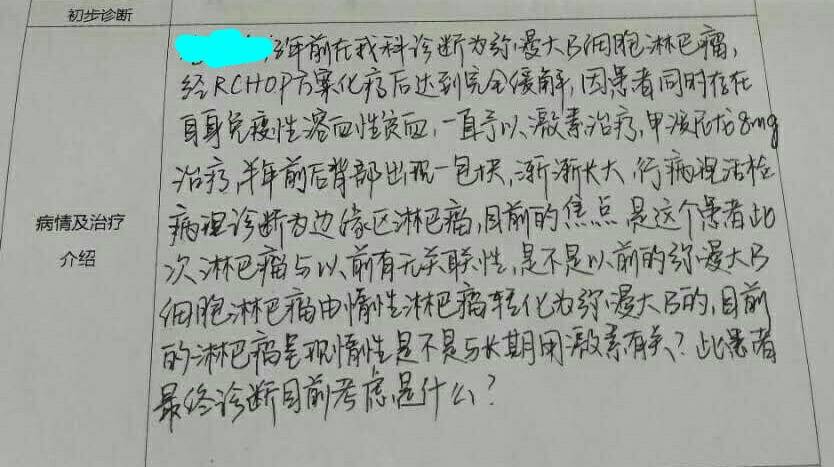 初步诊断
年前在我科诊断为弥漫大B细胞淋巴瘤,
经RCHOP方案化疗后达到完全缓解,因患者同时存在
自身免疫性溶血性贫血,一直予以激素治疗,甲泼尼龙8mg
治疗,半年前后背部出现一包块,渐渐长大,行病理活检
病理诊断为边缘区淋巴瘤,目前的焦点是这个患者此
病情及治疗
介绍
次淋巴瘤与以前有无关联性,是不是以前的弥漫大B
细胞淋巴瘤由惰性淋巴瘤转化为弥漫大B的,目前
的淋巴瘤呈现惰性是不是与长期用激素有关?此患者
最终诊断目前考虑是什么?